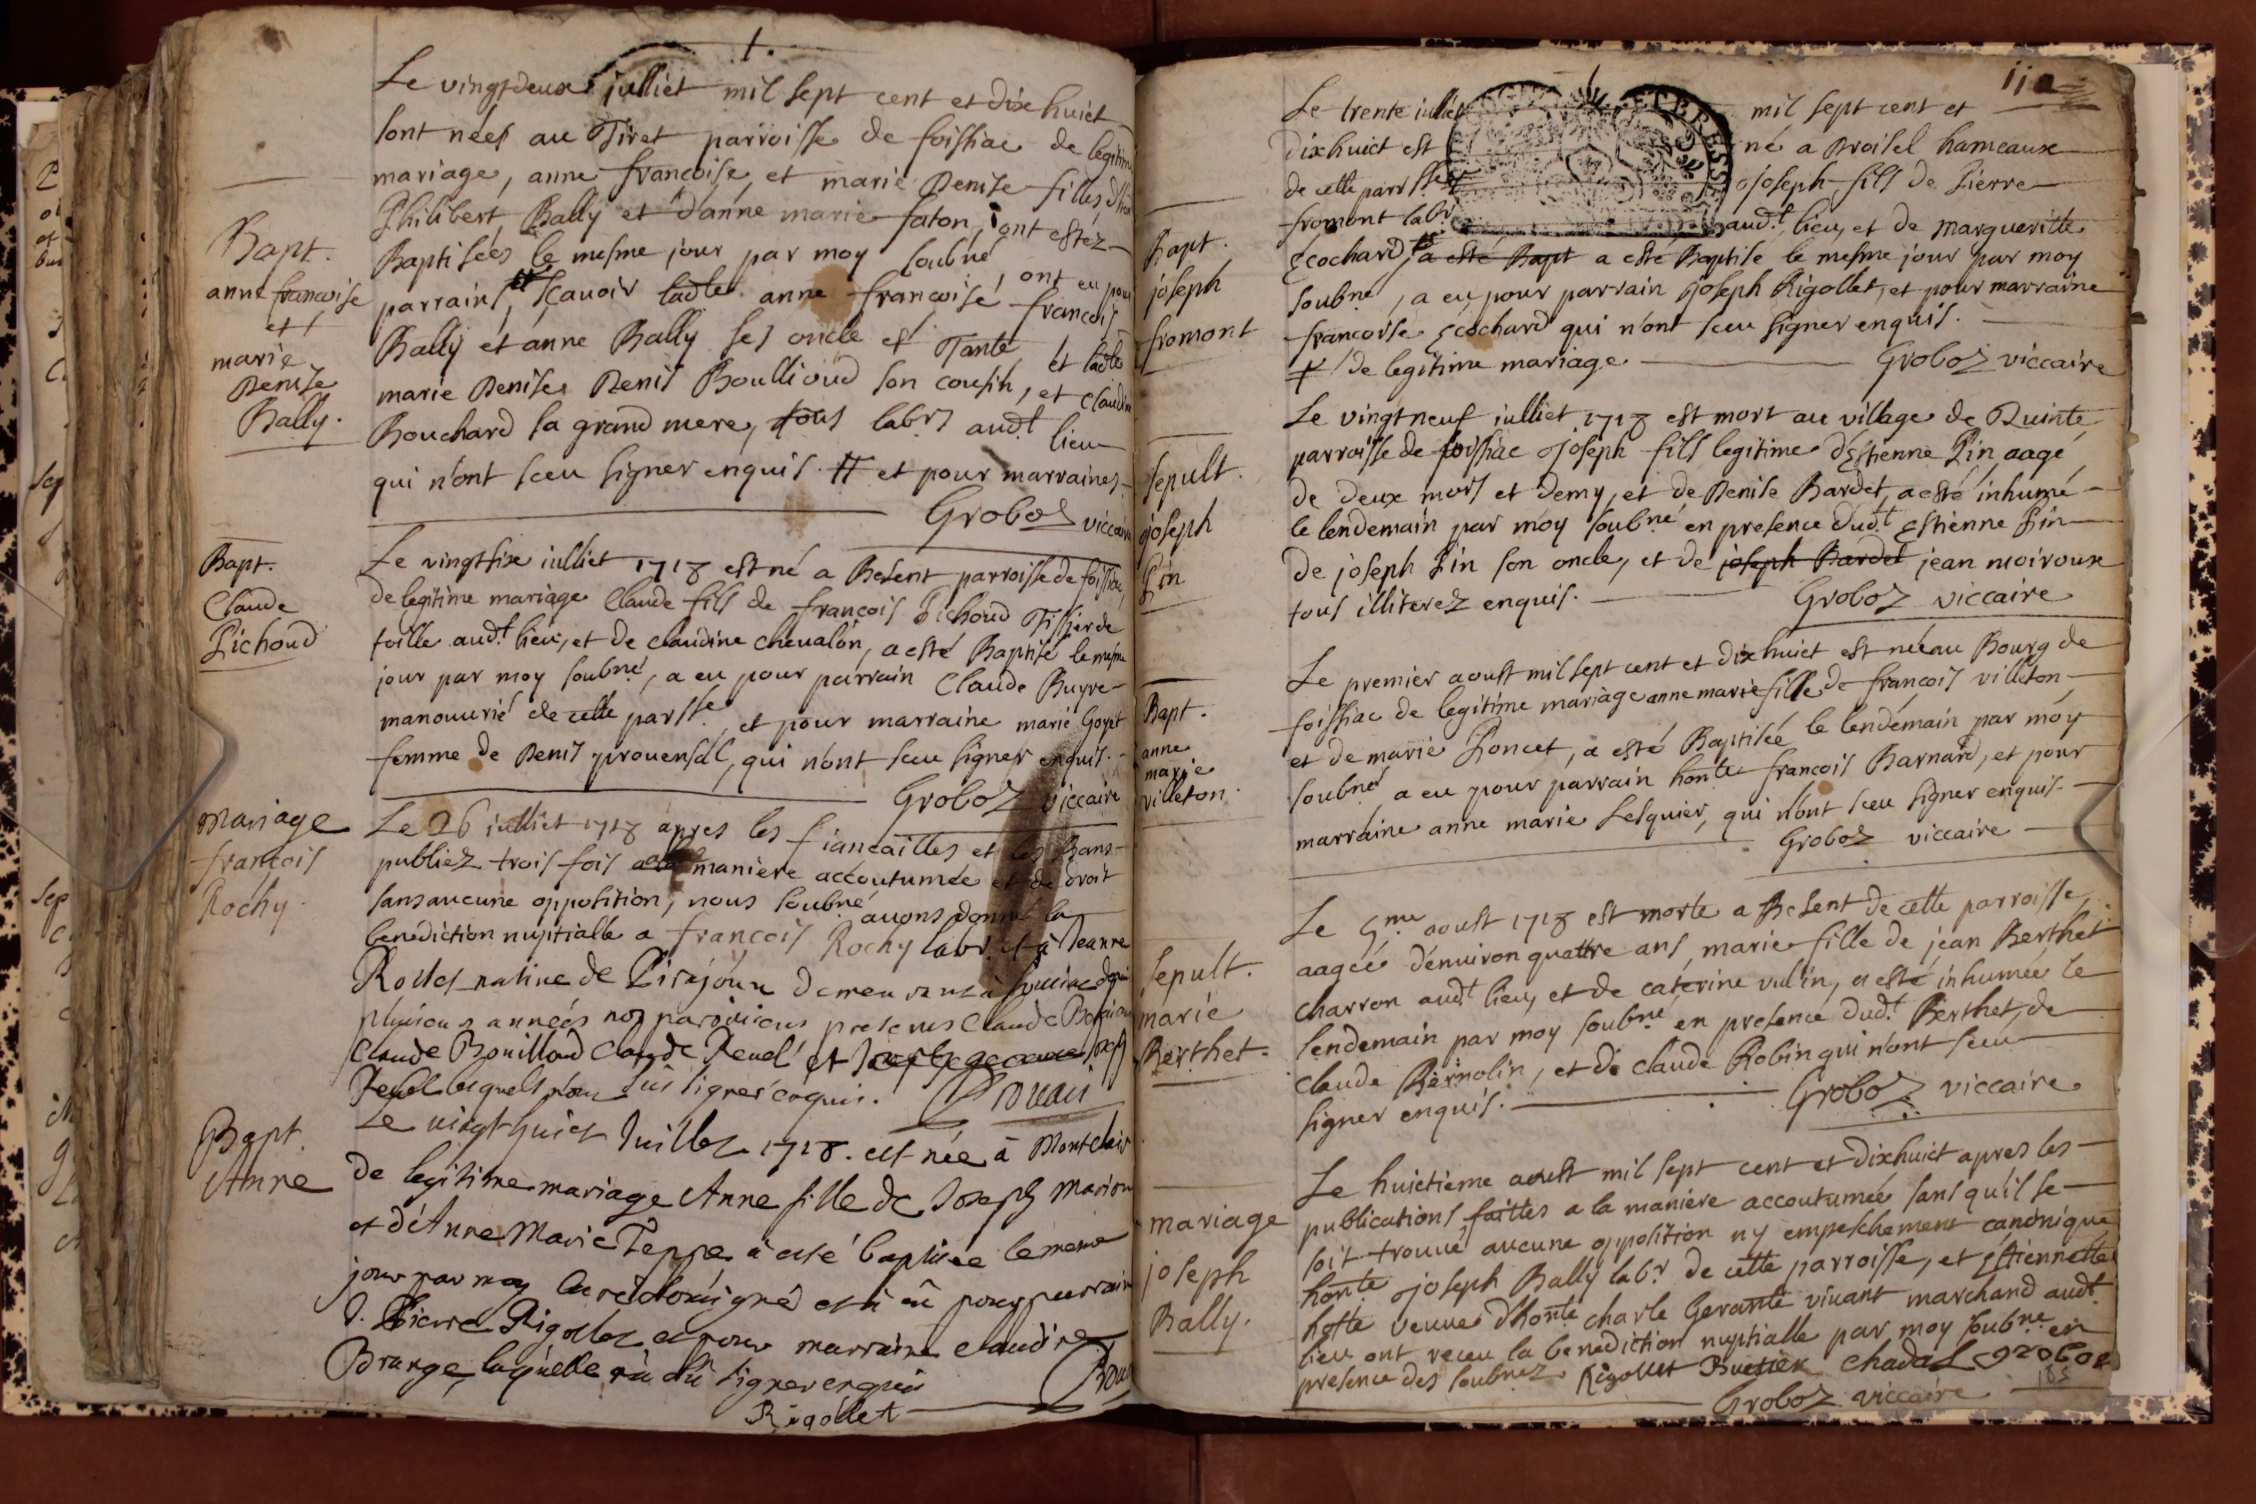 1.
Le vingtdeux julliet mil sept cent et dix huict
sont nées au Tiret parroisse de foissiac de legitime
mariage, anne francoise, et marie Denise filles d'hon
Philibert Bally et d'anne marie faton, ont estéz
Baptisées le mesme jour par moy soubné, ont eu pour
parrains, # sçavoir ladte anne francoise francois
Bally et anne Bally ses oncle et Tante, et ladte
marie Denise Denis Boullioud son cousin, et claudine
Bouchard sa grand mere, tous labrs audt lieu
qui n'ont sceu signer enquis. # et pour marraines
Groboz viccaire
Bapt.
anne francoise
et
marie
Denise
Bally.
Le vingtsix julliet 1718 est né a Besent parroisse de foissiac,
de legitime mariage Claude fils de francois Pichoud Tissier de
toille audt lieu, et de claudine chevalon, a esté Baptisé le mesme
jour par moy soubné, a eu pour parrain Claude Buyre
manouvrié de cette parsse, et pour marraine marie Goyet
femme de Denis provensal, qui n'ont sceu signer enquis.
Groboz viccaire
Bapt.
Claude
Pichoud
Le 26 julliet 1718 apres les fiancailles et les Bans
publiez trois fois a la maniere accoutumée et de droit
sans aucune opposition, nous soubné avons donné la
benediction nuptialle a francois Rochy labr. et à Jeanne
native de Pirajoux
plusieurs années nos paroissiens presens Claude
Claude Bouilloud Claude Revel et Joseph
Revel lesquels n'ont sû signer enquis.
Mariage
francois
Rochy.
Le vingt huict Juillet 1718. est née à Montclair
de legitime mariage Anne fille de Joseph Marion
et d'Anne Marie Teppe à esté baptisée le meme
jour par moy curé soussigné et à eû pour parrain
S. Pierre Rigollet et pour marraine claudine
Brange, laquelle n'a sû signer enquis
Rigollet
Bapt.
Anne
110
Le trente julliet mil sept cent et
dixhuict est né a Broisel hameaux
de cette parrsse # joseph fils de Pierre
fromont labr audt. lieu, et de Margueritte
Ecochard, a esté Bapt a esté Baptisé le mesme jour par moy
soubné, a eu pour parrain joseph Rigollet, et pour marraine
francoise Ecochard qui n'ont sceu signer enquis.
# de legitime mariage Groboz viccaire
Bapt.
joseph
fromont
Le vingt neuf julliet 1718 est mort au village de Quinte
parroisse de foissiac joseph fils legitime d'Estienne Pin aagé
de deux mois et demy, et de Denise Bardet, a esté inhumé
le lendemain par moy soubné en presence dudt. Estienne Pin
de joseph Pin son oncle, et de joseph Bardet jean moiroux
tous illiterez enquis. Groboz viccaire
Sepult.
joseph
Pin
Le premier aoust mil sept cent et dix huict est née au Bourg de
foissiac de legitime mariage anne marie fille de francois villeton
et de marie Poncet, a esté Baptisée le lendemain par moy
soubné a eu pour parrain honte francois Barnard, et pour
marraine anne marie Lesquier, qui n'ont sceu signer enquis.
Groboz viccaire
Bapt.
anne
marie
villeton.
Le 5me aoust 1718 est morte a Besent de cette parroisse,
aagée d'environ quattre ans, marie fille de jean Berthet
charron audt lieu, et de caterine vulin, a esté inhumée le
lendemain par moy soubné en presence dudt. Berthet, de
claude Bernolin, et de claude Robin qui n'ont sceu
signer enquis. Groboz viccaire
Sepult.
marie
Berthet.
Le huictieme aoust mil sept cent et dixhuict apres les
publications faittes a la maniere accoutumée sans qu'il se
soit trouvé aucune opposition ny empeschement canonique
honte joseph Bally labr de cette parroisse, et Estiennette
hotte veuve d'honte charle Gerante vivant marchand audt
lieu ont receu la benediction nuptialle par moy soubné en
presence des soubnez Rigollet Chadal groboz
Groboz viccaire
mariage
joseph
Bally.